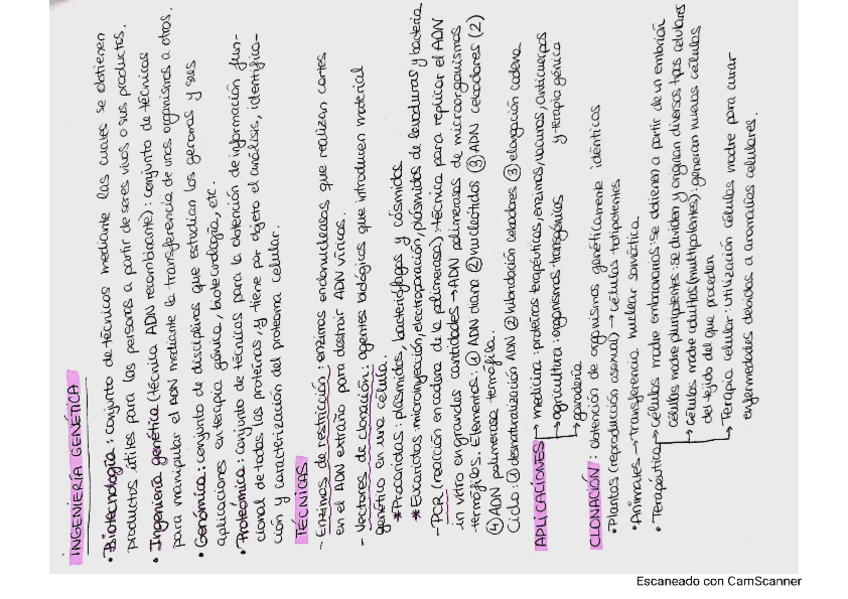 INGENIERÍA GENÉTICA
• Biotecnología: conjunto de técnicas mediante las cuales se obtienen
productos útiles para las personas a partir de seres vivos o sus productos.
• Ingeniería genética (técnica ADN recombinante): conjunto de técnicas
para manipular el ADN mediante la transferencia de unos organismos a otros.
• Genómica: conjunto de disciplinas que estudian los genomas y sus
aplicaciones en terapia génica, biotecnología, etc.
• Proteómica: conjunto de técnicas para la obtención de información fun-
cional de todas las proteínas, y tiene por objeto el análisis, identifica-
ción y caracterización del proteoma celular.
TÉCNICAS
- Enzimas de restricción: enzimas endonucleasas que realizan cortes
en el ADN extraño para destruir ADN víricas.
- Vectores de clonación: agentes biológicos que introducen material
genético en una célula.
* Procariotas: plásmidos, bacteriófagos y cósmidos.
* Eucariotas: microinyección, electroporación, plásmidos de levaduras y bacteria
- PCR (reacción en cadena de la polimerasa): técnica para replicar el ADN
in vitro en grandes cantidades → ADN polimerasas de microorganismos
termófilos. Elementos: ① ADN diana ② nucleótidos ③ ADN cebadores (2)
④ ADN polimerasa termófila.
Ciclo: ① desnaturalización ADN ② hibridación cebadores ③ elongación cadena
APLICACIONES → medicina: proteínas terapéuticas, enzimas, vacunas, anticuerpos
y terapia génica
→ agricultura: organismos transgénicos
→ ganadería
CLONACIÓN: obtención de organismos genéticamente idénticos
• Plantas (reproducción asexual) → células totipotentes
• Animales → Transferencia nuclear somática
• Terapéutica → células madre embrionarias: se obtienen a partir de un embrión
células madre pluripotentes: se dividen y originan diversos tipos celulares
→ células madre adultas (multipotentes): generan nuevas células
del tejido del que proceden
→ Terapia celular: utilización células madre para curar
enfermedades debidas a anomalías celulares.
Escaneado con CamScanner